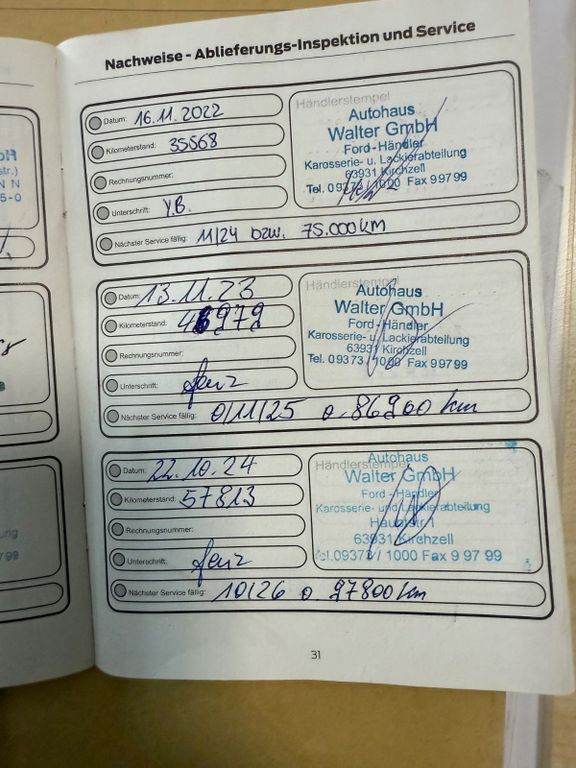 Nachweise - Ablieferungs-Inspektion und Service
Datum: 16.11.2022
Kilometerstand: 35568
Rechnungsnummer:
Unterschrift: Y.B.
Nächster Service fällig: 11/24 bzw. 75.000 KM
Händlerstempel
Autohaus
Walter GmbH
Ford-Händler
Karosserie- u. Lackierabteilung
63931 Kirchzell
Tel. 09373 / 1000 Fax 99799
Datum: 13.11.23
Kilometerstand: 46979
Rechnungsnummer:
Unterschrift:
Nächster Service fällig: 0/11/25 o. 86900 km
Händlerstempel
Autohaus
Walter GmbH
Ford-Händler
Karosserie- u. Lackierabteilung
63931 Kirchzell
Tel. 09373 / 1000 Fax 99799
Datum: 22.10.24
Kilometerstand: 57813
Rechnungsnummer:
Unterschrift:
Nächster Service fällig: 10/26 o. 97800 km
Händlerstempel
Autohaus
Walter GmbH
Ford - Händler
Karosserie- und Lackierabteilung
Hauptstr. 1
63931 Kirchzell
Tel.09373 / 1000 Fax 9 97 99
31